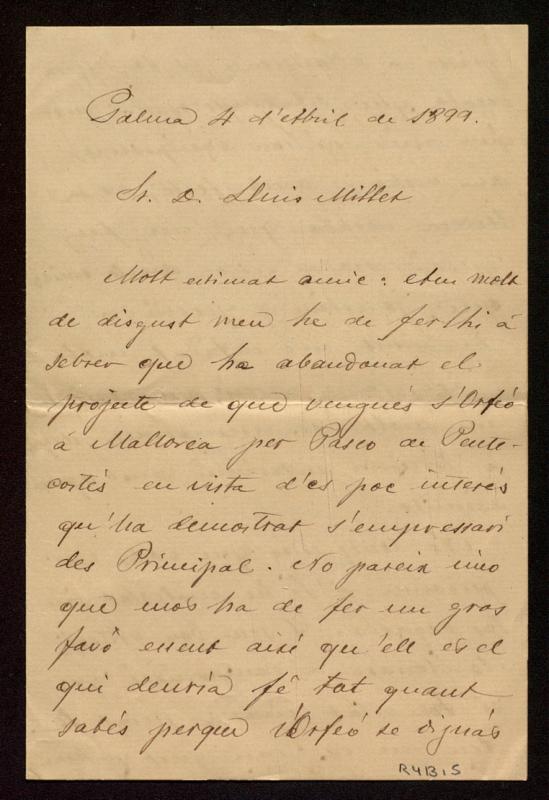 Palma 4 d'Abril de 1899.
Sr. D. Lluis Millet
Molt estimat amic: Am molt
de disgust meu he de ferlhi á
sebrer que he abandonat el
projecte de que vengués s'Orfeó
á Mallorca per Pasco de Pente-
costés en vista d'es poc interés
qu'ha demostrat s'empressari
des Principal. No pareix sino
que mos ha de fer un gros
favô essent aixi qu'ell es el
qui deuría fê tot quant
sabés perque l'Orfeó se dignás
R4B1S